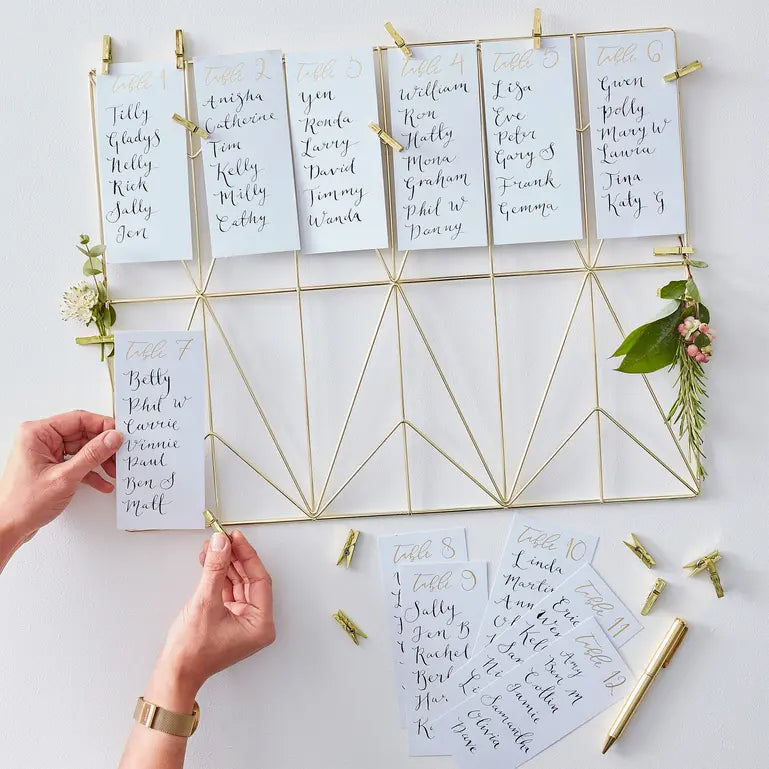 Table 1
Tilly
Gladys
Nelly
Rick
Sally
Jen
Table 2
Anisha
Catherine
Tim
Kelly
Milly
Cathy
Table 3
Yen
Ronda
Larry
David
Timmy
Wanda
Table 4
William
Ron
Hatty
Mona
Graham
Phil W
Danny
Table 5
Lisa
Eve
Peter
Gary S
Frank
Gemma
Table 6
Gwen
Polly
Mary W
Laura
Tina
Katy G
Table 7
Betty
Phil W
Carrie
Vinnie
Paul
Ben S
Matt
Table 8
Table 9
Sally
Jen B
Rachel
Table 10
Linda
Martin
Ann
Table 11
Eric
Wen
Table 12
Amy
Ben M
Collin
Jamie
Samantha
Olivia
Dave